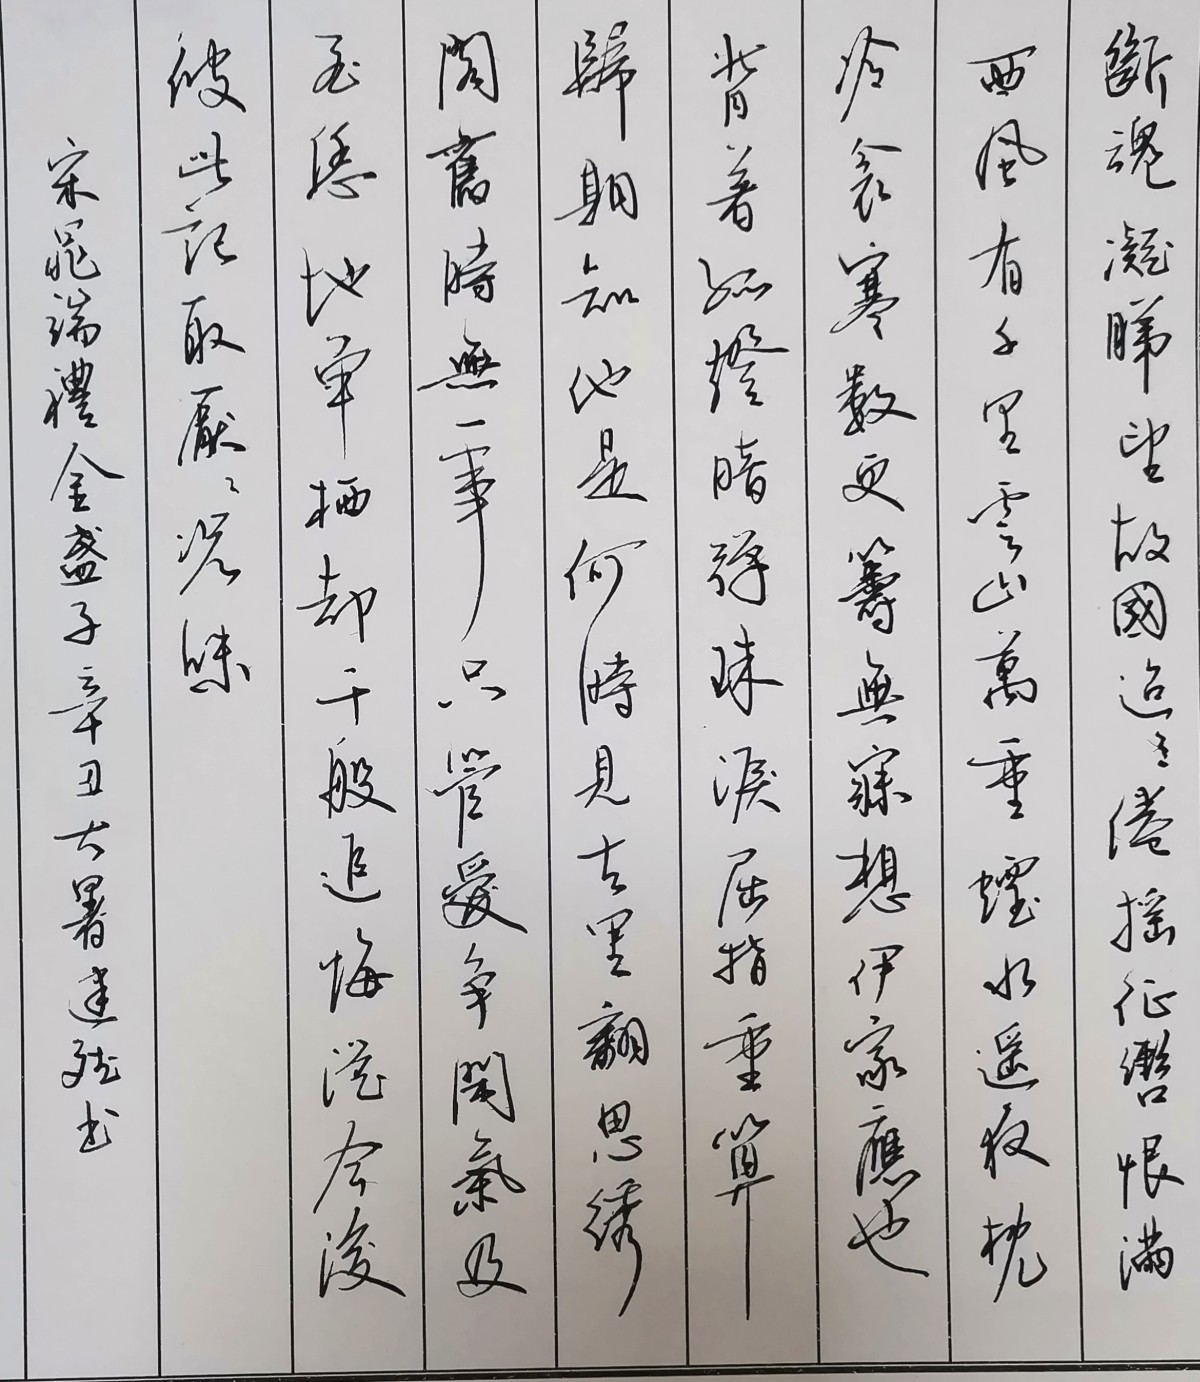 斷魂凝睇望故國迢々倦摇征轡恨滿
西風有千里雲山萬重煙水遥夜枕
冷衾寒數更籌無寐想伊家應也
背著孤燈暗彈珠淚屈指重算
歸期知他是何時見去里翻思綉
閣舊時無一事只管愛争閑氣及
至恁地單栖却千般追悔從今後
彼此記取厭々況味
宋晁端禮金盞子辛丑大暑建
書